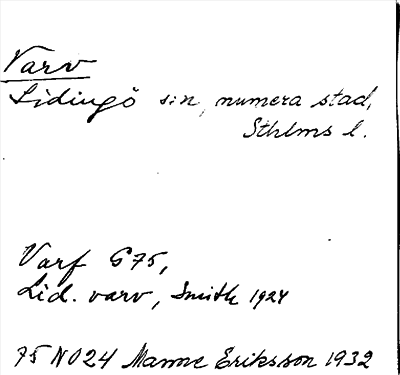 Varv
Lidingö sn, numera stad,
Sthlms l.
Varf G75,
Lid. varv, Smith 1924
75 NO24 Manne Eriksson 1932